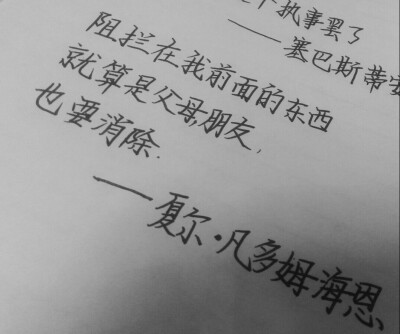 个执事罢了
——塞巴斯蒂安
阻拦在我前面的东西
就算是父母,朋友,
也要消除.
——夏尔·凡多姆海恩